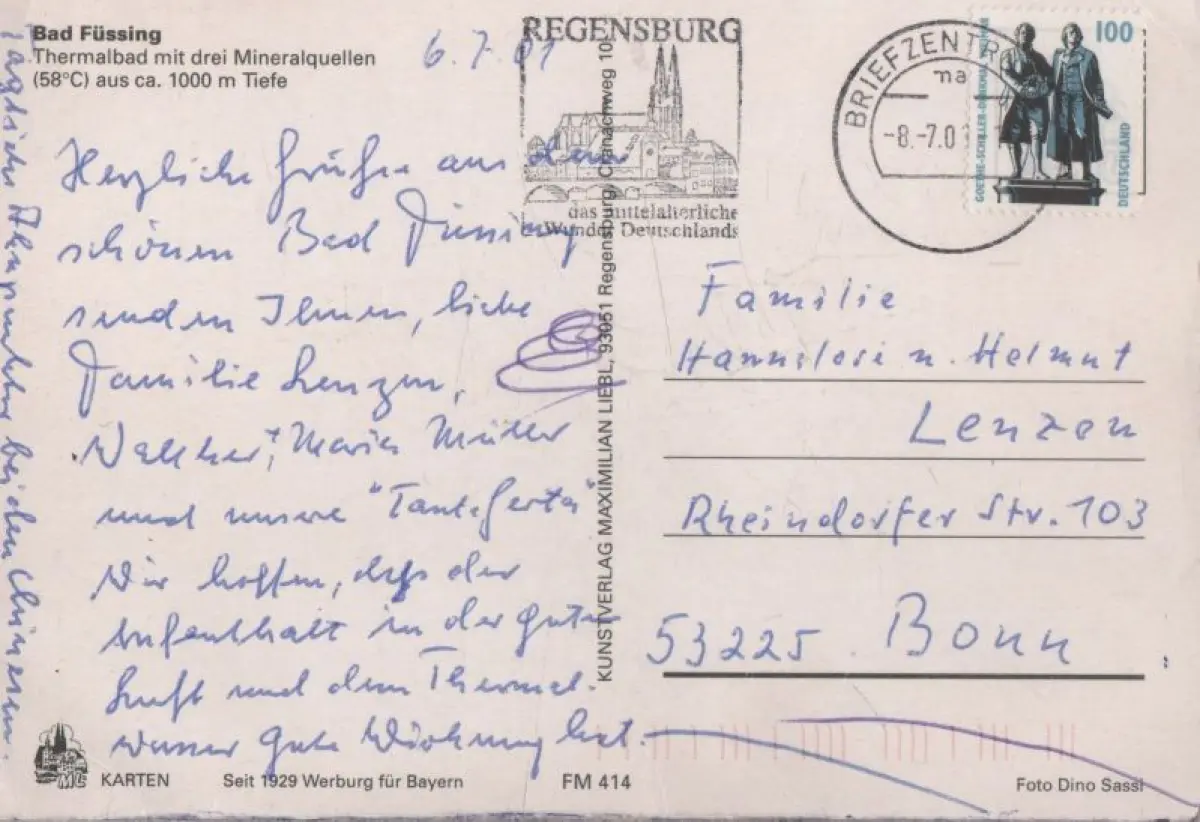 Bad Füssing
Thermalbad mit drei Mineralquellen
(58°C) aus ca. 1000 m Tiefe
6.7.01
Herzliche Grüße aus dem
schönen Bad Füssing
senden Ihnen, liebe
Familie Lenzen,
Walther, + Maria Müller
und unsere "Tante Gerta"
Wir hoffen, daß der
Aufenthalt in der guten
Luft und dem Thermal-
wasser gute Wirkung hat.
Täglich bei den Chinesen.
REGENSBURG
das mittelalterliche
Wunder Deutschlands
BRIEFZENTR
ma
-8.-7.0
100
GOETHE-SCHILLER-DENKMAL
DEUTSCHLAND
Familie
Hannelore u. Helmut
Lenzen
Rheindorfer Str. 103
53225 Bonn
KUNSTVERLAG MAXIMILIAN LIEBL, 93051 Regensburg, Cranachweg 10
ML KARTEN
Seit 1929 Werburg für Bayern
FM 414
Foto Dino Sassi